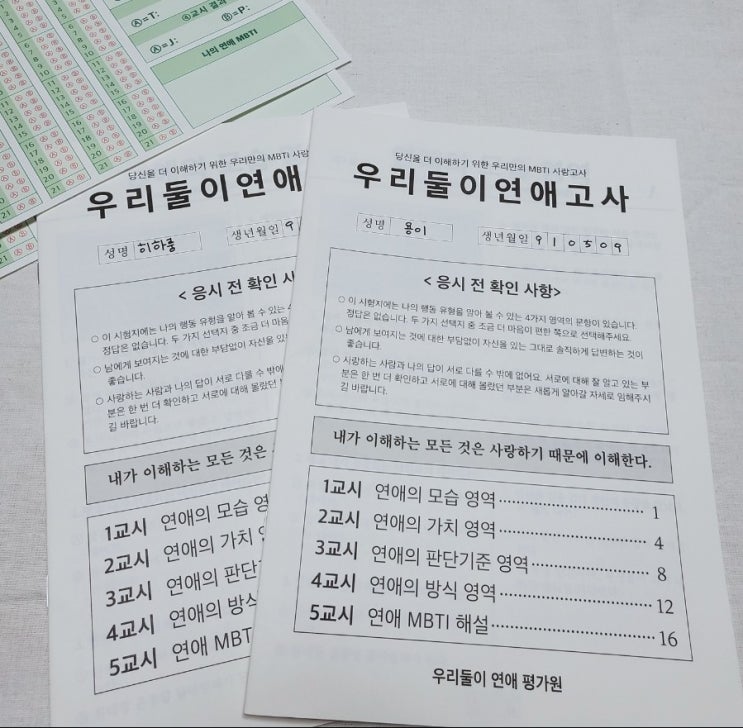 Ⓐ=T:
④교시 결과
Ⓐ=J:
Ⓑ=P:
나의 연애 MBTI
당신을 더 이해하기 위한 우리만의 MBTI 사랑
우리둘이연애
성명 히하홍
생년월일 9
< 응시 전 확인 사
○ 이 시험지에는 나의 행동 유형을 알아 볼 수 있는
정답은 없습니다. 두 가지 선택지 중 조금 더 마
○ 남에게 보여지는 것에 대한 부담없이 자신을 있
좋습니다.
○ 사랑하는 사람과 나의 답이 서로 다를 수 밖에
분은 한 번 더 확인하고 서로에 대해 몰랐던
길 바랍니다.
내가 이해하는 모든 것은
1교시 연애의 모습 영
2교시 연애의 가치
3교시 연애의 판단
4교시 연애의 방식
5교시 연애 MBT
당신을 더 이해하기 위한 우리만의 MBTI 사랑고사
우리둘이연애고사
성명 용이
생년월일 910509
< 응시 전 확인 사항>
○ 이 시험지에는 나의 행동 유형을 알아 볼 수 있는 4가지 영역의 문항이 있습니다.
정답은 없습니다. 두 가지 선택지 중 조금 더 마음이 편한 쪽으로 선택해주세요.
○ 남에게 보여지는 것에 대한 부담없이 자신을 있는 그대로 솔직하게 답변하는 것이
좋습니다.
○ 사랑하는 사람과 나의 답이 서로 다를 수 밖에 없어요. 서로에 대해 잘 알고 있는 부
분은 한 번 더 확인하고 서로에 대해 몰랐던 부분은 새롭게 알아갈 자세로 임해주시
길 바랍니다.
내가 이해하는 모든 것은 사랑하기 때문에 이해한다.
1교시 연애의 모습 영역 1
2교시 연애의 가치 영역 4
3교시 연애의 판단기준 영역 8
4교시 연애의 방식 영역 12
5교시 연애 MBTI 해설 16
우리둘이 연애 평가원